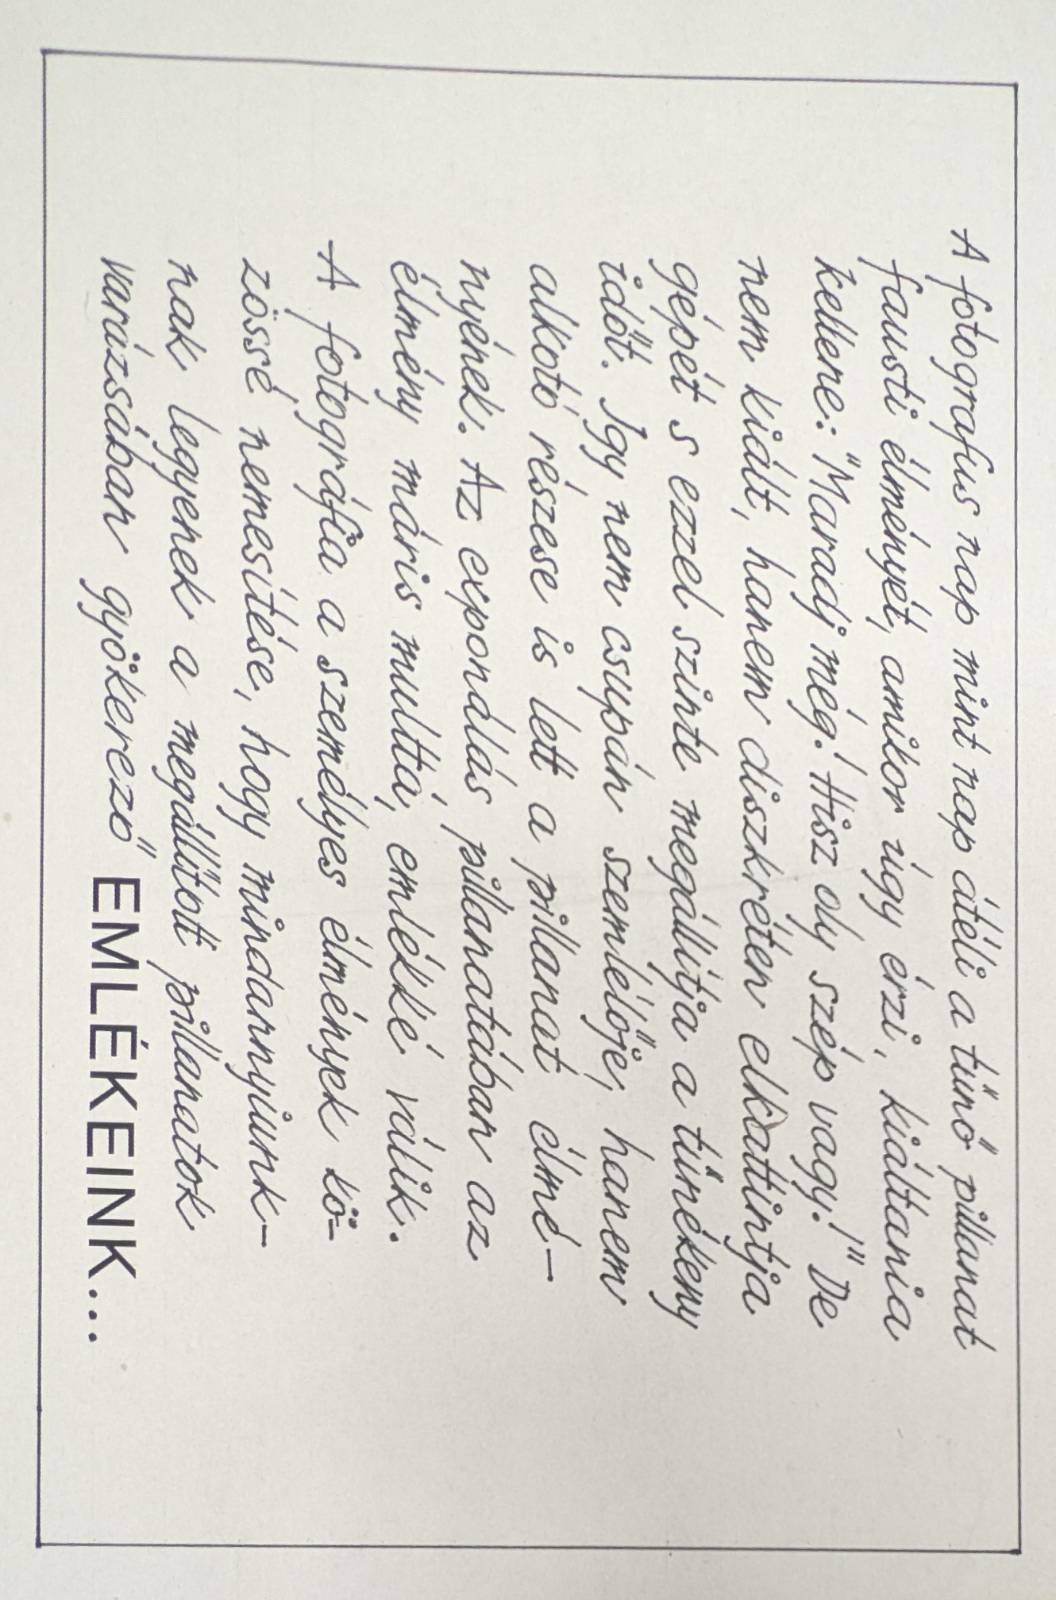 A fotografus nap mint nap átéli a tűnő pillanat
fausti élményét, amikor úgy érzi, kiáltania
kellene: "Maradj még! Hisz oly szép vagy!" De
nem kiált, hanem diszkréten elkattintja
gépét s ezzel szinte megállítja a tűnékeny
időt. Igy nem csupán szemlélője, hanem
alkotó részese is lett a pillanat élmé-
nyének. Az exponálás pillanatában az
élmény máris multtá, emlékké válik.
A fotográfia a személyes élmények kö-
zössé nemesítése, hogy mindannyiunk-
nak legyenek a megállított pillanatok
varázsában gyökerező EMLÉKEINK...